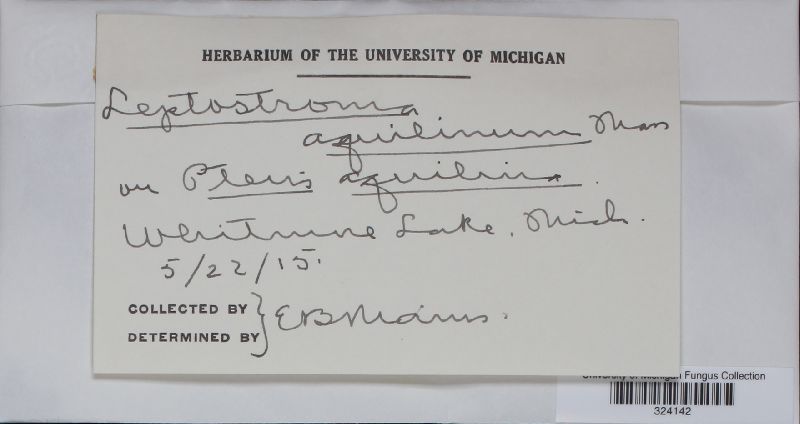 HERBARIUM OF THE UNIVERSITY OF MICHIGAN
Leptostroma
aquilinum Mass
on Pteris aquilina.
Whitmore Lake, Mich.
5/22/15.
COLLECTED BY
DETERMINED BY
EBMains.
University of Michigan Fungus Collection
324142